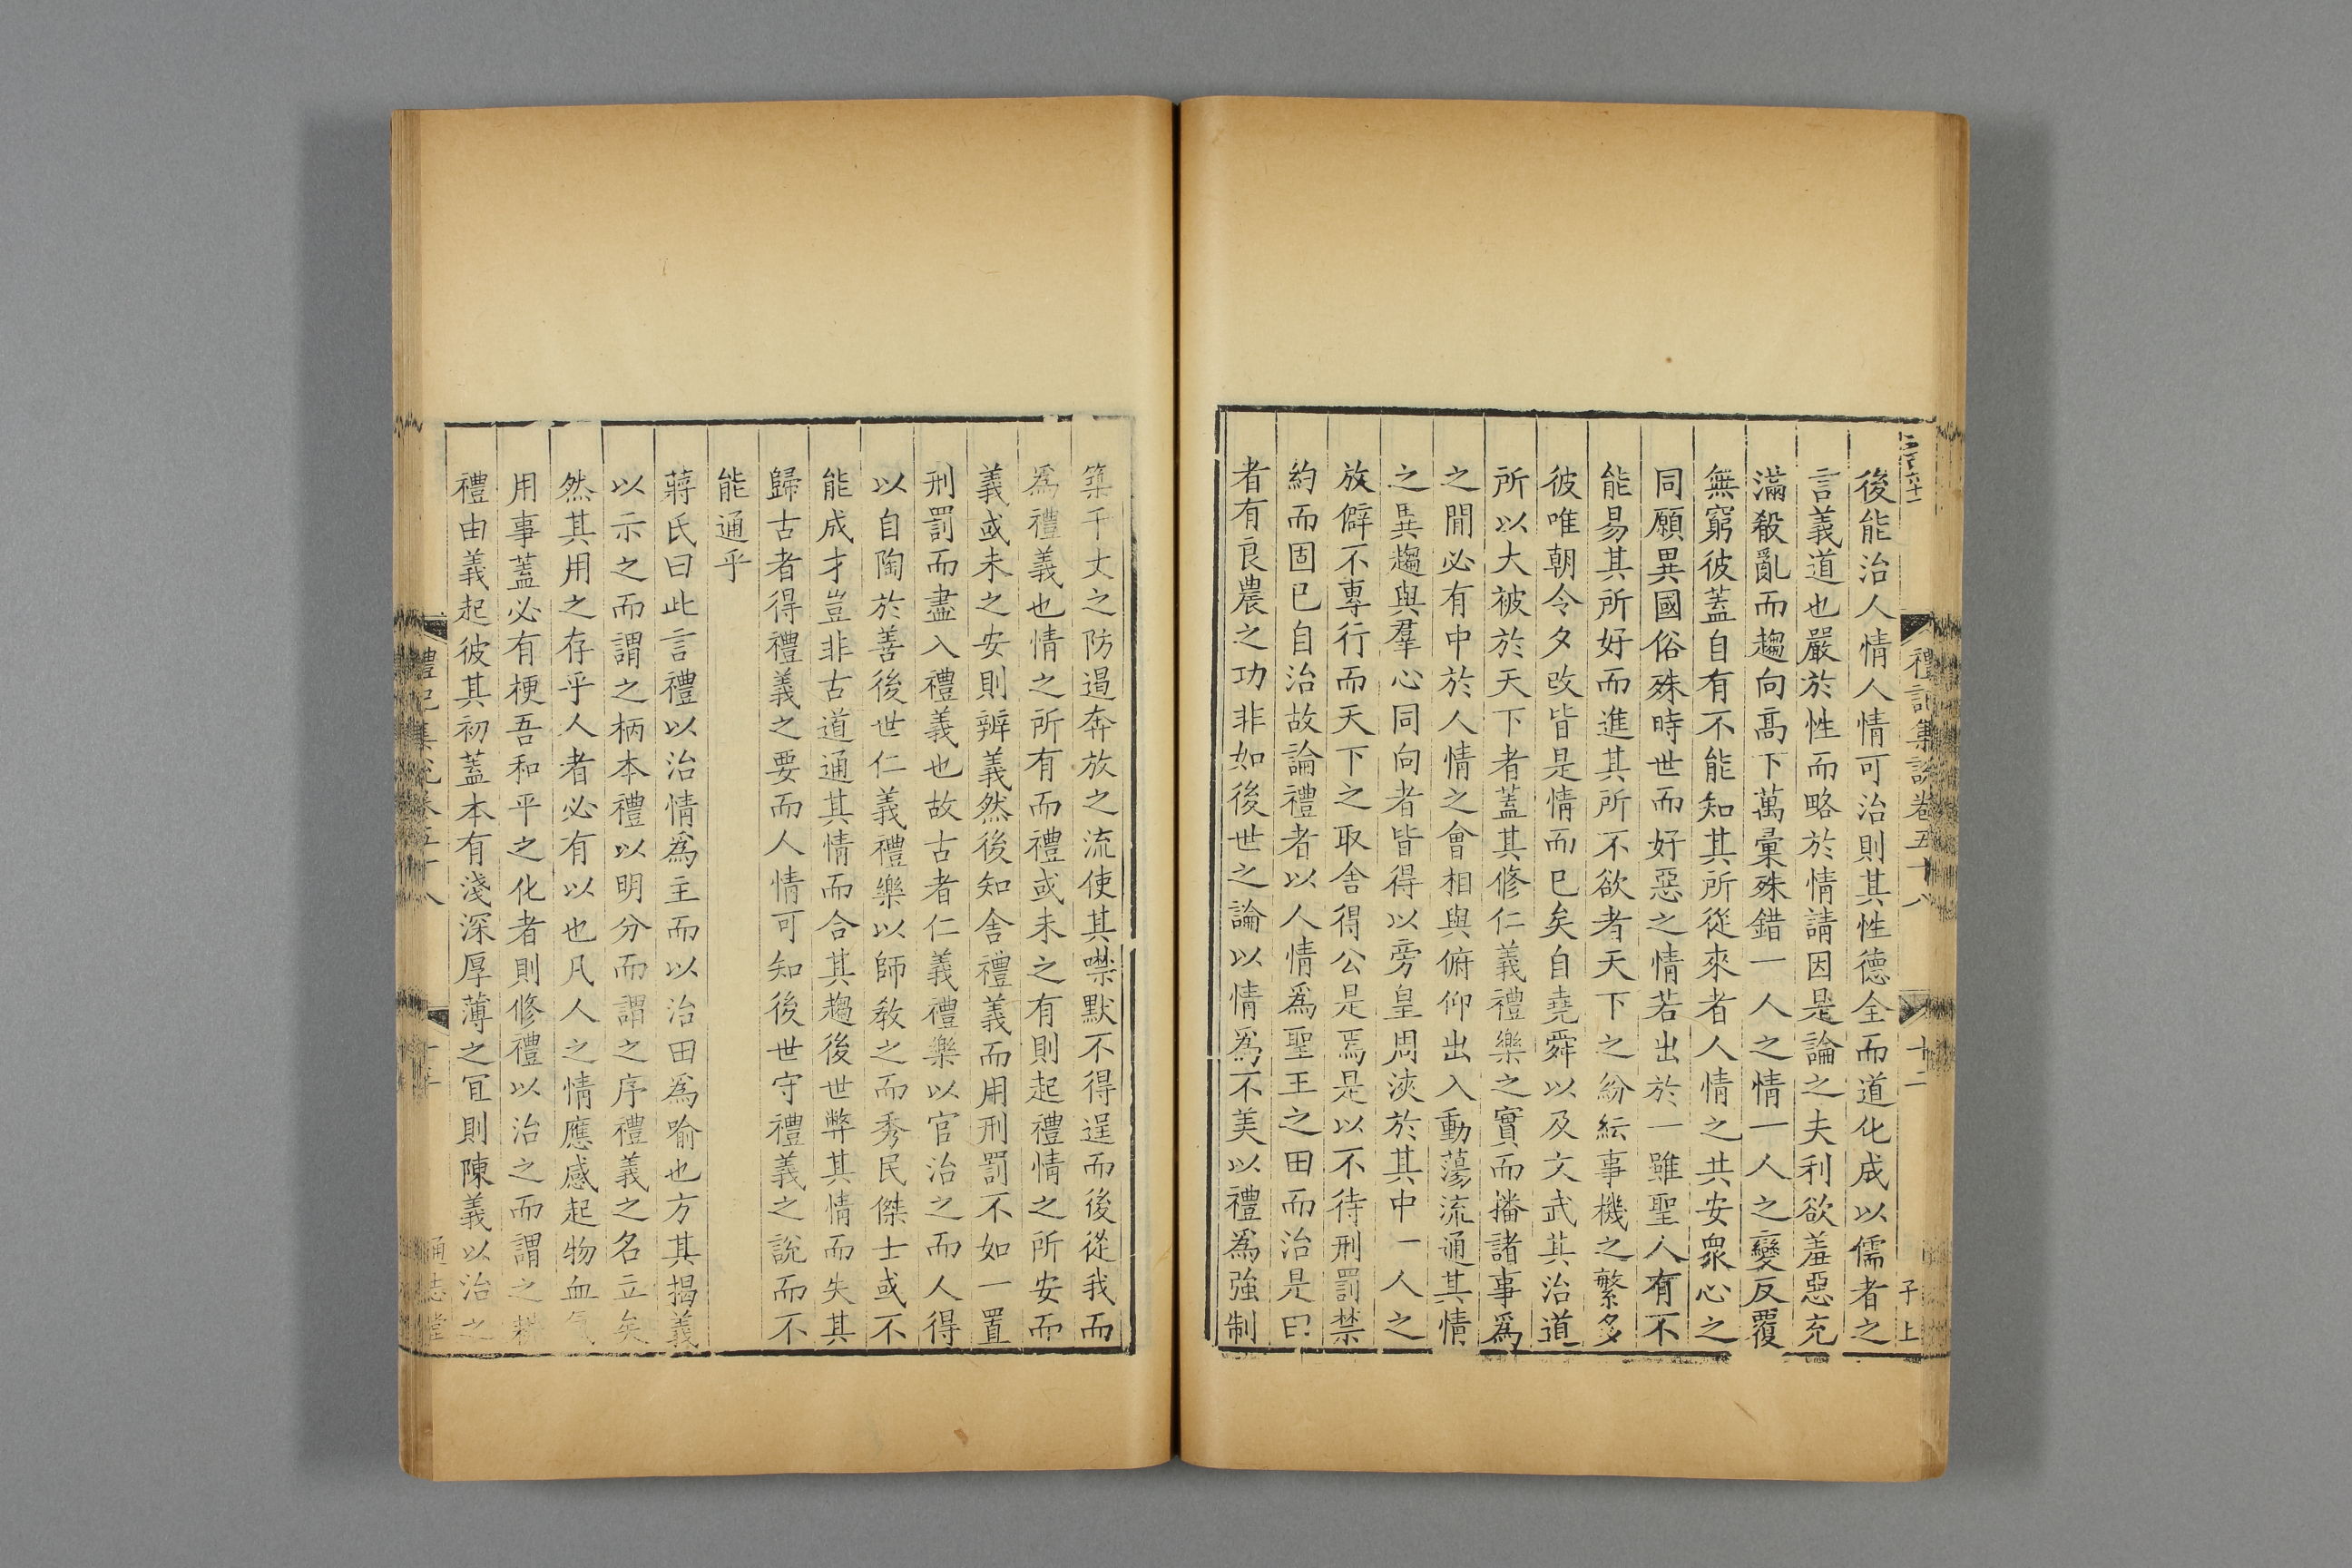 禮記集說卷五十八
十二
子上
後能治人情人情可治則其性德全而道化成以儒者之
言義道也嚴於性而略於情請因是論之夫利欲羞惡充
滿殽亂而趨向髙下萬彙殊錯一人之情一人之變反覆
無窮彼蓋自有不能知其所從來者人情之共安衆心之
同願異國俗殊時世而好惡之情若出於一雖聖人有不
能易其所好而進其所不欲者天下之紛紜事機之繁多
彼唯朝令夕改皆是情而已矣自堯舜以及文武其治道
所以大被於天下者蓋其修仁義禮樂之實而播諸事爲
之閒必有中於人情之會相與俯仰出入動蕩流通其情
之異趨與羣心同向者皆得以旁皇周浹於其中一人之
放僻不專行而天下之取舍得公是焉是以不待刑罰禁
約而固已自治故論禮者以人情爲聖王之田而治是田
者有良農之功非如後世之論以情爲不美以禮爲強制
築千丈之防遏奔放之流使其噤默不得逞而後從我而
爲禮義也情之所有而禮或未之有則起禮情之所安而
義或未之安則辨義然後知舍禮義而用刑罰不如一置
刑罰而盡入禮義也故古者仁義禮樂以官治之而人得
以自陶於善後世仁義禮樂以師敎之而秀民傑士或不
能成才豈非古道通其情而合其趨後世弊其情而失其
歸古者得禮義之要而人情可知後世守禮義之說而不
能通乎
蔣氏曰此言禮以治情爲主而以治田爲喻也方其揭義
以示之而謂之柄本禮以明分而謂之序禮義之名立矣
然其用之存乎人者必有以也凡人之情應感起物血氣
用事蓋必有梗吾和平之化者則修禮以治之而謂之耕
禮由義起彼其初蓋本有淺深厚薄之宜則陳義以治之
禮記集說卷五十八
通志堂